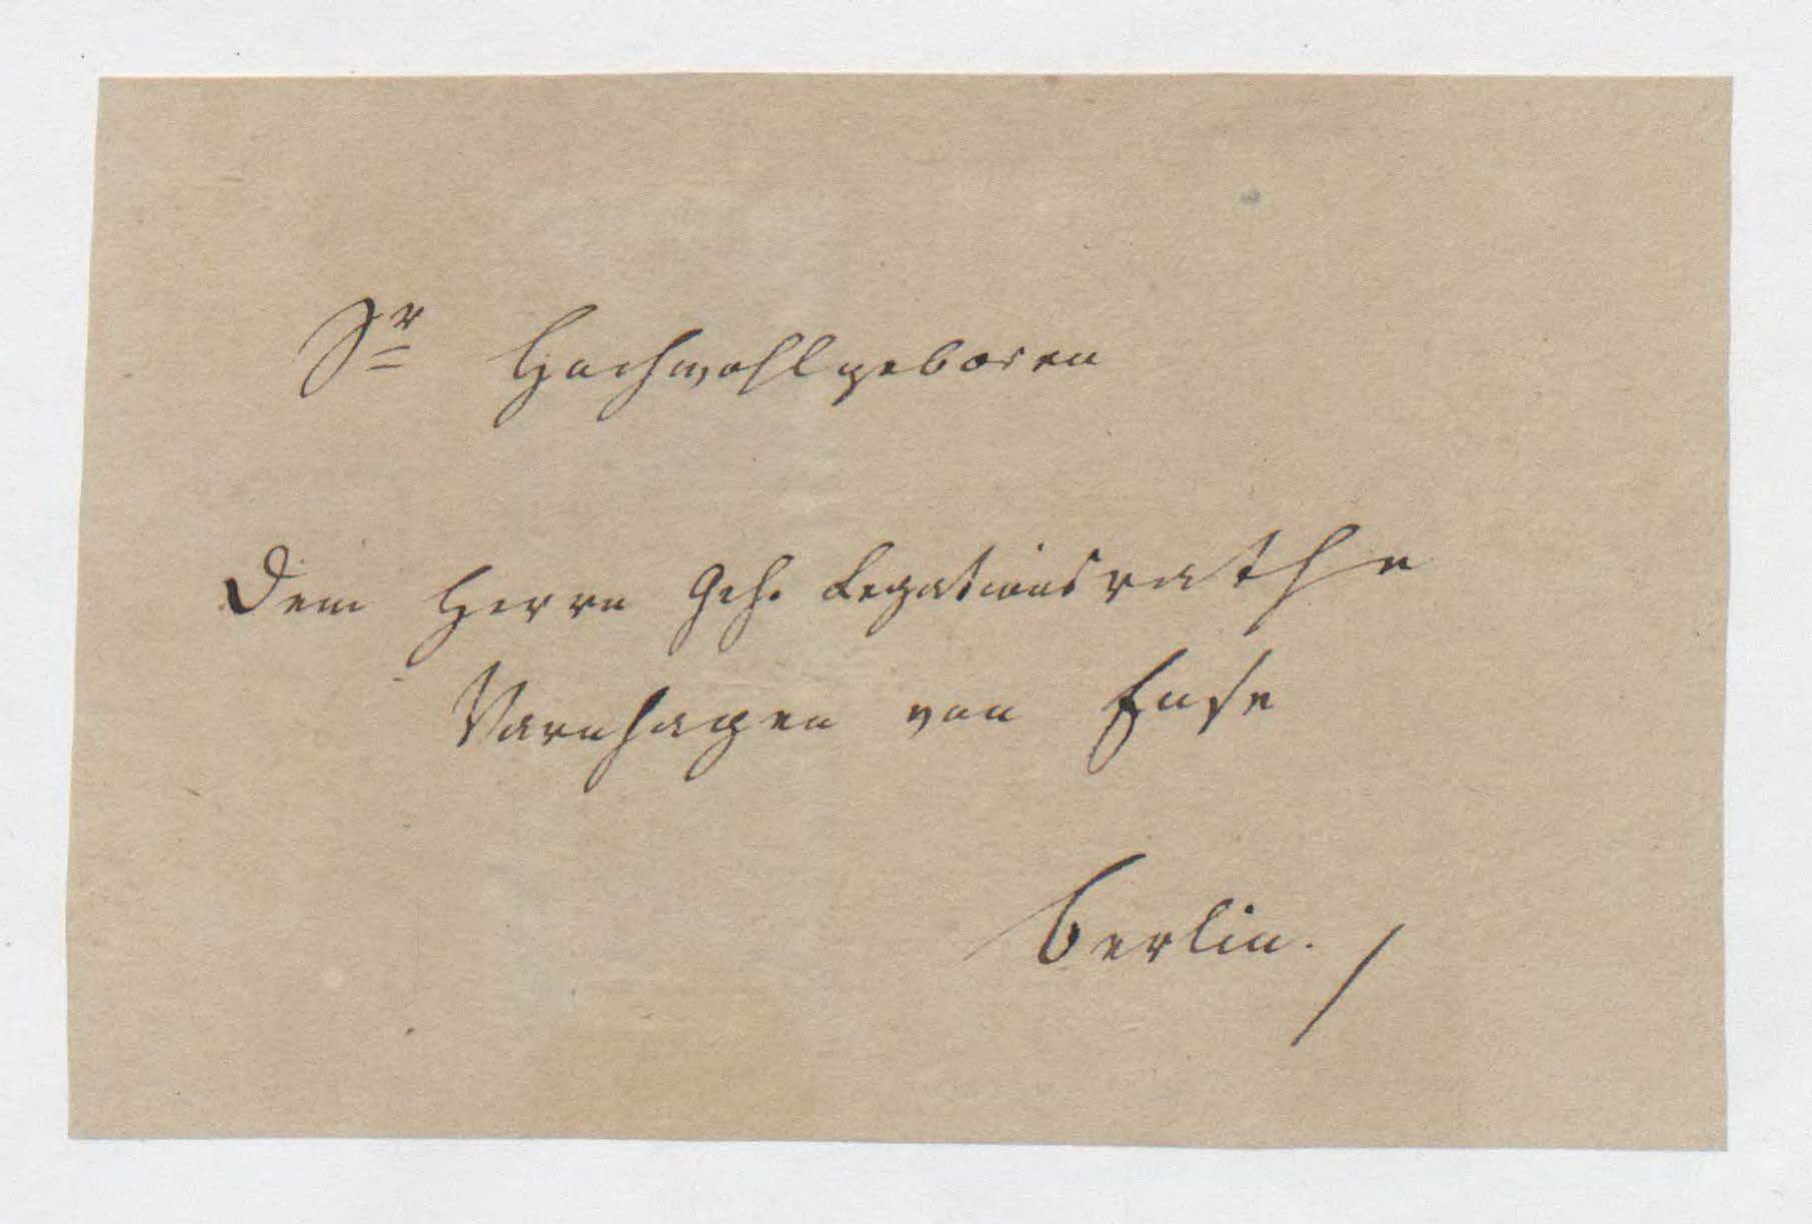 Sr Hochwohlgeboren
Dem Herrn Geh. Legationsrathe
Varnhagen von Ense
Berlin. /